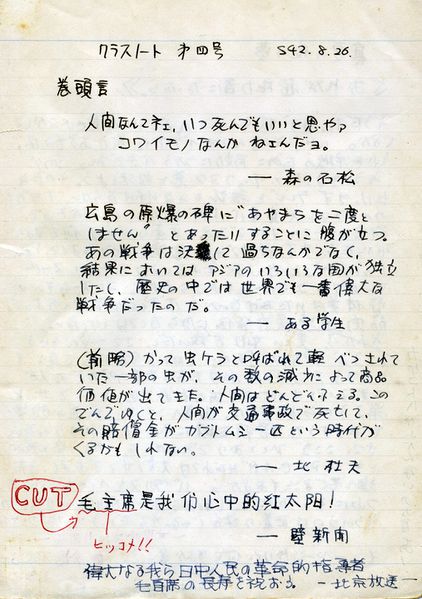 クラスノート 第四号 S42.8.26.
巻頭言
人間なんてネェ,いつ死んでもいいと思やァ
コワイモノなんか ねェんだョ。
— 森の石松
広島の原爆の碑に"あやまちを二度と
はません" とあったりすることに腹が立つ。
あの戦争は決して過ちなんかでなく,
結果においては アジアのいろいろな国が独立
したし,歴史の中では世界でも一番偉大な
戦争だったのだ。
— ある学生
(前略)かつて虫ケラと呼ばれて軽べつされて
いた一部の虫が,その数の減少によって商品
価値が出てきた。人間はどんどんふえる。この
でんでゆくと,人間が交通事故で死亡して,
その賠償金がカブトムシ一匹という時代が
くるかもしれない。
— 北杜夫
CUT
毛主席是我们心中的红太阳!
— 壁新聞
ヒッコメ!!
偉大なる我ら日中人民の革命的指導者
毛首席の長寿を祝おう。 —北京放送—